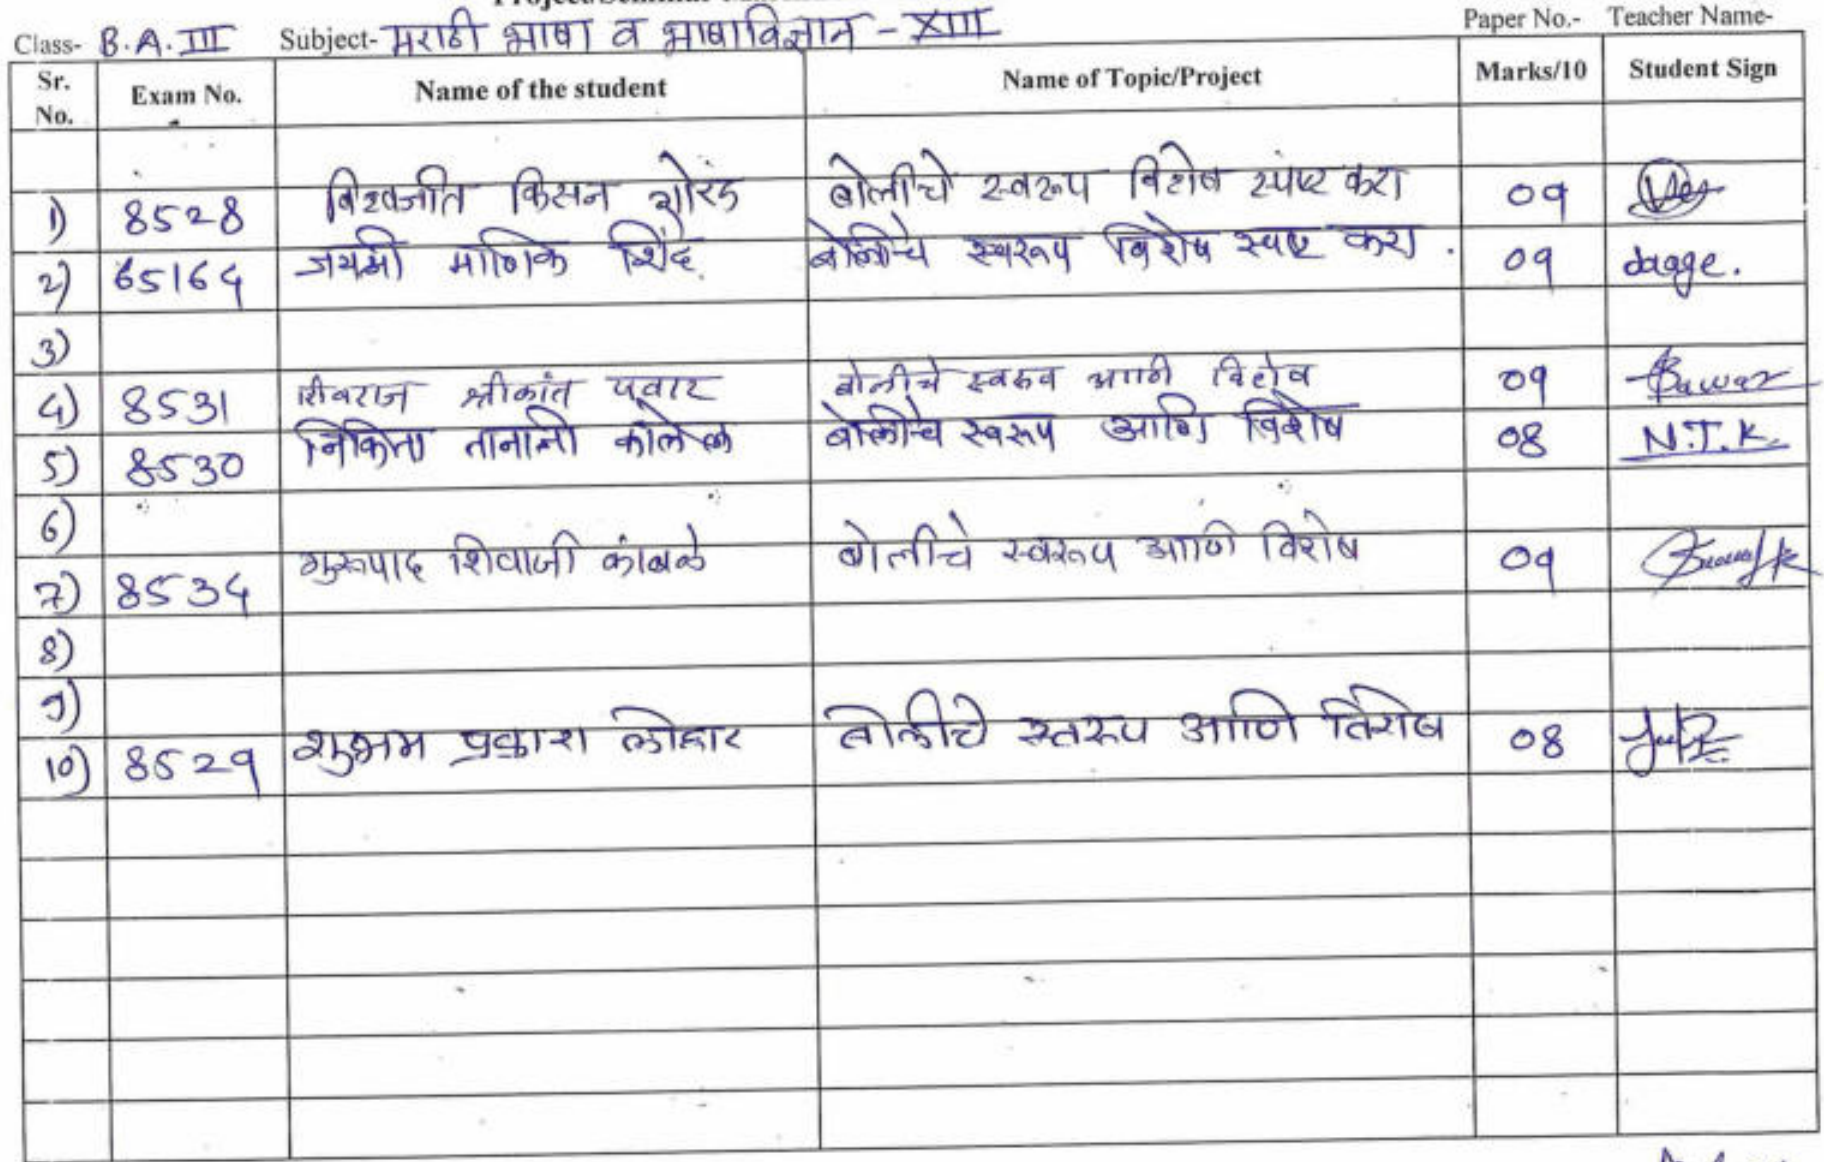 Class- B.A. III Subject- मराठी भाषा व भाषाविज्ञान - XIII Paper No.- Teacher Name-
Sr. No. Exam No. Name of the student Name of Topic/Project Marks/10 Student Sign
1) 8528 विश्वजीत किसन बोलीचे स्वरूप विशेष स्पष्ट करा 09
2) 65164 माणिक शिंदे बोलीचे स्वरूप विशेष स्पष्ट करा. 09
3)
4) 8531 शिवराज श्रीकांत पवार बोलीचे स्वरुप आणि विशेष 09 Pawar
5) 8530 निकिता तानाजी कोलेकर बोलीचे स्वरूप आणि विशेष 08 N.T.K.
6)
7) 8534 गुरुपाद शिवाजी कांबळे बोलीचे स्वरूप आणि विशेष 09
8)
9)
10) 8529 शुभम प्रकाश लोहार बोलीचे स्वरूप आणि विशेष 08